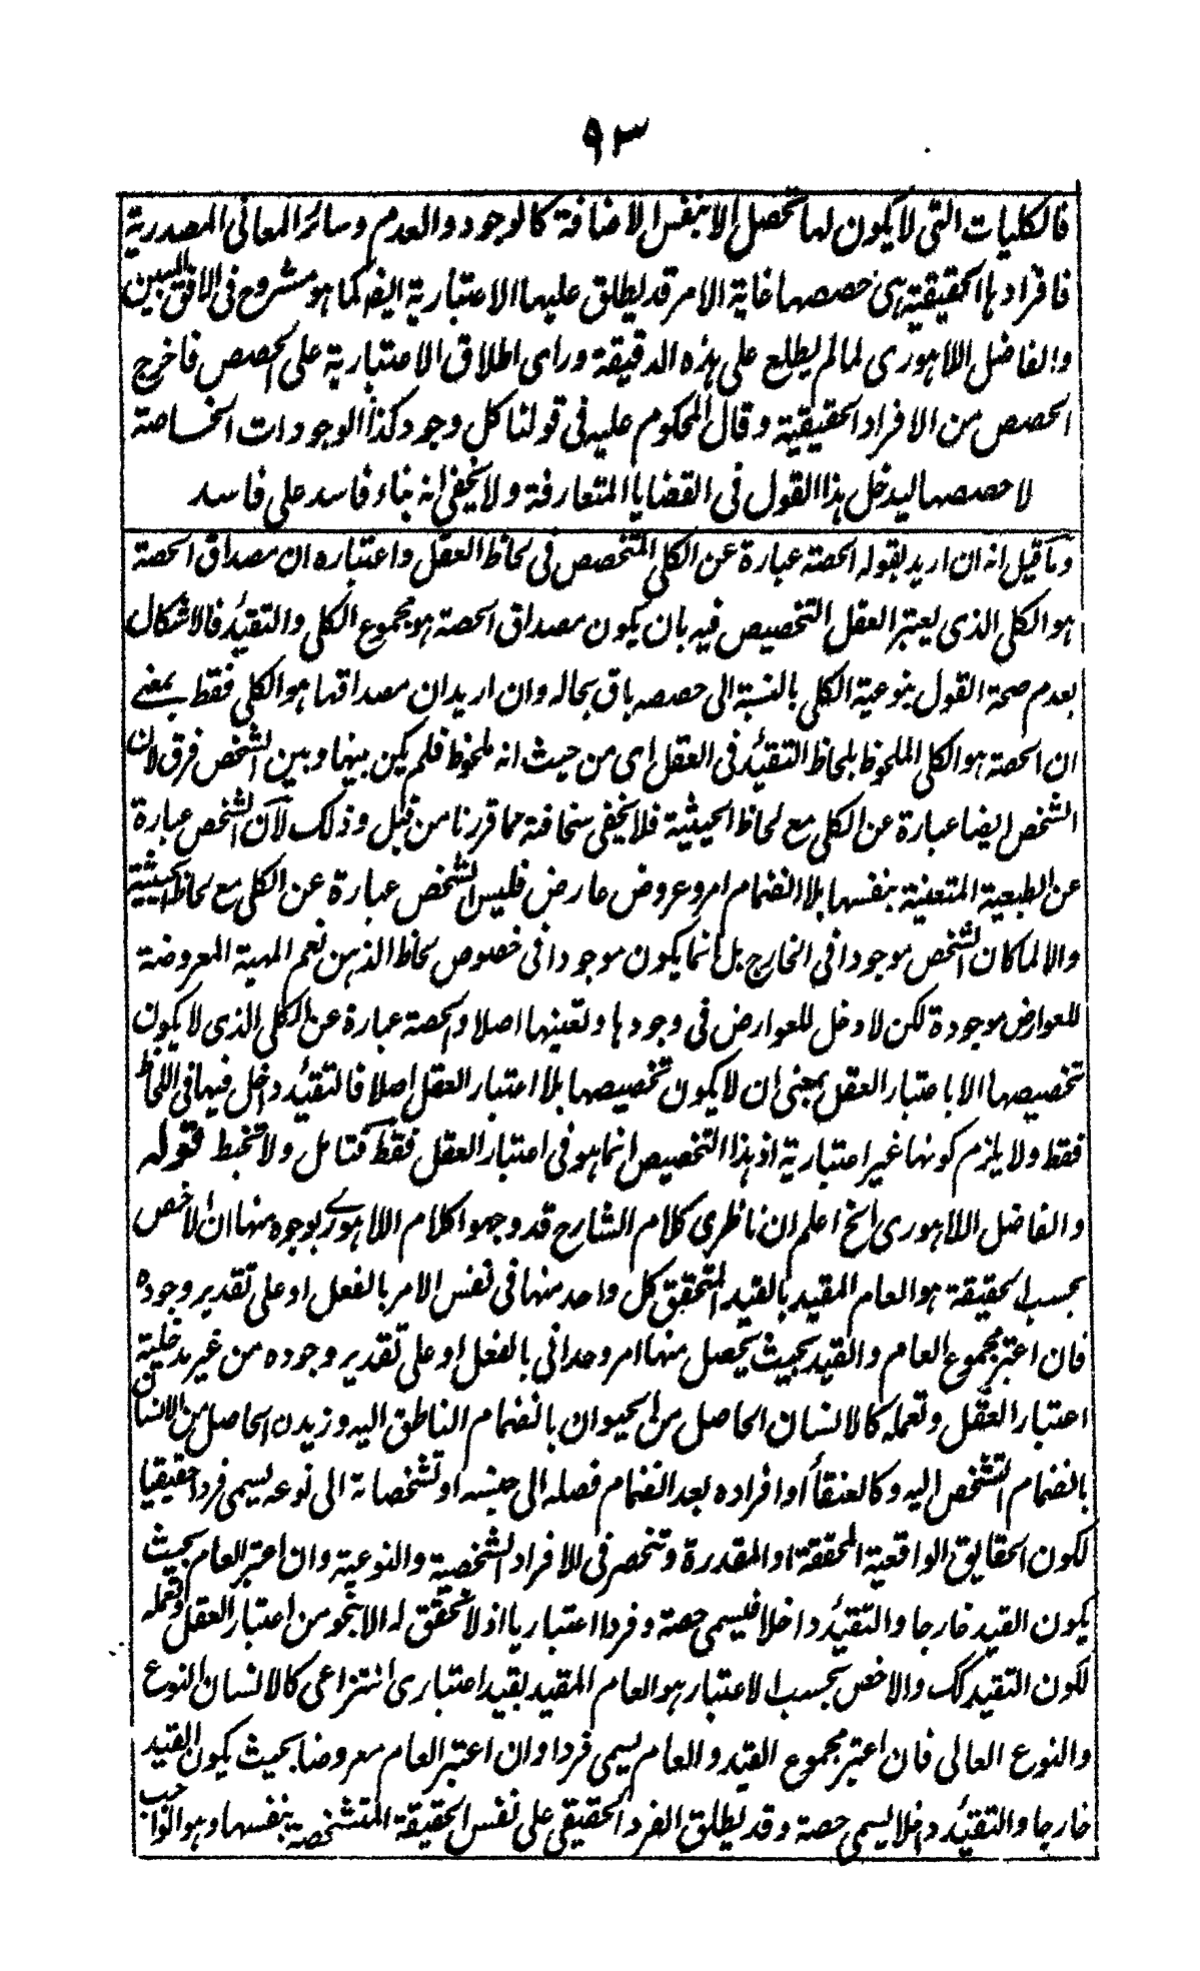 ٩٣
فالكليات التى لا يكون لها تحصل الا بنفس الاضافة كالوجود والعدم وسائر المعانى المصدرية
فافرادها الحقيقية هى حصصها غاية الامر قد يطلق عليها الاعتبارية ايضا كما هو مشروح فى الافق المبين
والفاضل اللاهورى لما لم يطلع على هذه الدقيقة وراى اطلاق الاعتبارية على الحصص فاخرج
الحصص من الافراد الحقيقية وقال المحكوم عليه فى قولنا كل وجود كذا الوجودات الخاصة
لا حصصها ليدخل هذا القول فى القضايا المتعارفة ولا يخفى انه بناء فاسد على فاسد
وما قيل انه ان اريد بقوله الحصة عبارة عن الكلى المتخصص فى لحاظ العقل واعتباره ان مصداق الحصة
هو الكلى الذى يعتبر العقل التخصيص فيه بان يكون مصداق الحصة هو مجموع الكلى والتقيد فالاشكال
بعدم صحة القول بنوعية الكلى بالنسبة الى حصصه باق بحاله وان اريد ان مصداقها هو الكلى فقط بمعنى
ان الحصة هو الكلى الملحوظ بلحاظ التقيد فى العقل اى من حيث انه ملحوظ فلم يكن بينها وبين الشخص فرق لان
الشخص ايضا عبارة عن الكلى مع لحاظ الحيثية فلا يخفى سخافته مما قررنا من قبل وذلك لان الشخص عبارة
عن الطبعية المتعينة بنفسها بلا انضمام امر وعروض عارض فليس الشخص عبارة عن الكلى مع لحاظ الحيثية
والا لما كان الشخص موجودا فى الخارج بل انما يكون موجودا فى خصوص لحاظ الذهن نعم المهية المعروضة
للعوارض موجودة لكن لا دخل للعوارض فى وجودها وتعينها اصلا والحصة عبارة عن الكلى الذى لا يكون
تخصيصها الا باعتبار العقل بمعنى ان لا يكون تخصيصها بلا اعتبار العقل اصلا فالتقيد داخل فيها فى اللحاظ
فقط ولا يلزم كونها غير اعتبارية اذ هذا التخصيص انما هو فى اعتبار العقل فقط فتامل ولا تخبط قوله
والفاضل اللاهورى الخ اعلم ان ناظرى كلام الشارح قد وجهوا كلام اللاهورى بوجوه منها ان الاخص
بحسب الحقيقة هو العام المقيد بالقيد المتحقق كل واحد منها فى نفس الامر بالفعل او على تقدير وجوده
فان اعتبر مجموع العام والقيد بحيث يحصل منها امر وحدانى بالفعل او على تقدير وجوده من غير مدخلية
اعتبار العقل وتعمله كالانسان الحاصل من الحيوان بانضمام الناطق اليه وزيدن الحاصل من الانسان
بانضمام التشخص اليه وكالعنقاء او افراده بعد انضمام فصله الى جنسه او تشخصاته الى نوعه يسمى فردا حقيقيا
لكون الحقايق الواقعية المحققة او المقدرة وتنحصر فى للافراد الشخصية والنوعية وان اعتبر العام بحيث
يكون القيد خارجا والتقيد داخلا فيسمى حصة وفردا اعتباريا اذ لا تحقق له الا بنحو من اعتبار العقل وتعمله
لكون التقيد كك والاخص بحسب الاعتبار هو العام المقيد بقيد اعتبارى انتزاعى كالانسان النوع
والنوع العالى فان اعتبر مجموع القيد والعام يسمى فردا وان اعتبر العام معروضا بحيث يكون القيد
خارجا والتقيد داخلا يسمى حصة وقد يطلق الفرد الحقيقى على نفس الحقيقة المتشخصة بنفسها وهو الواجب